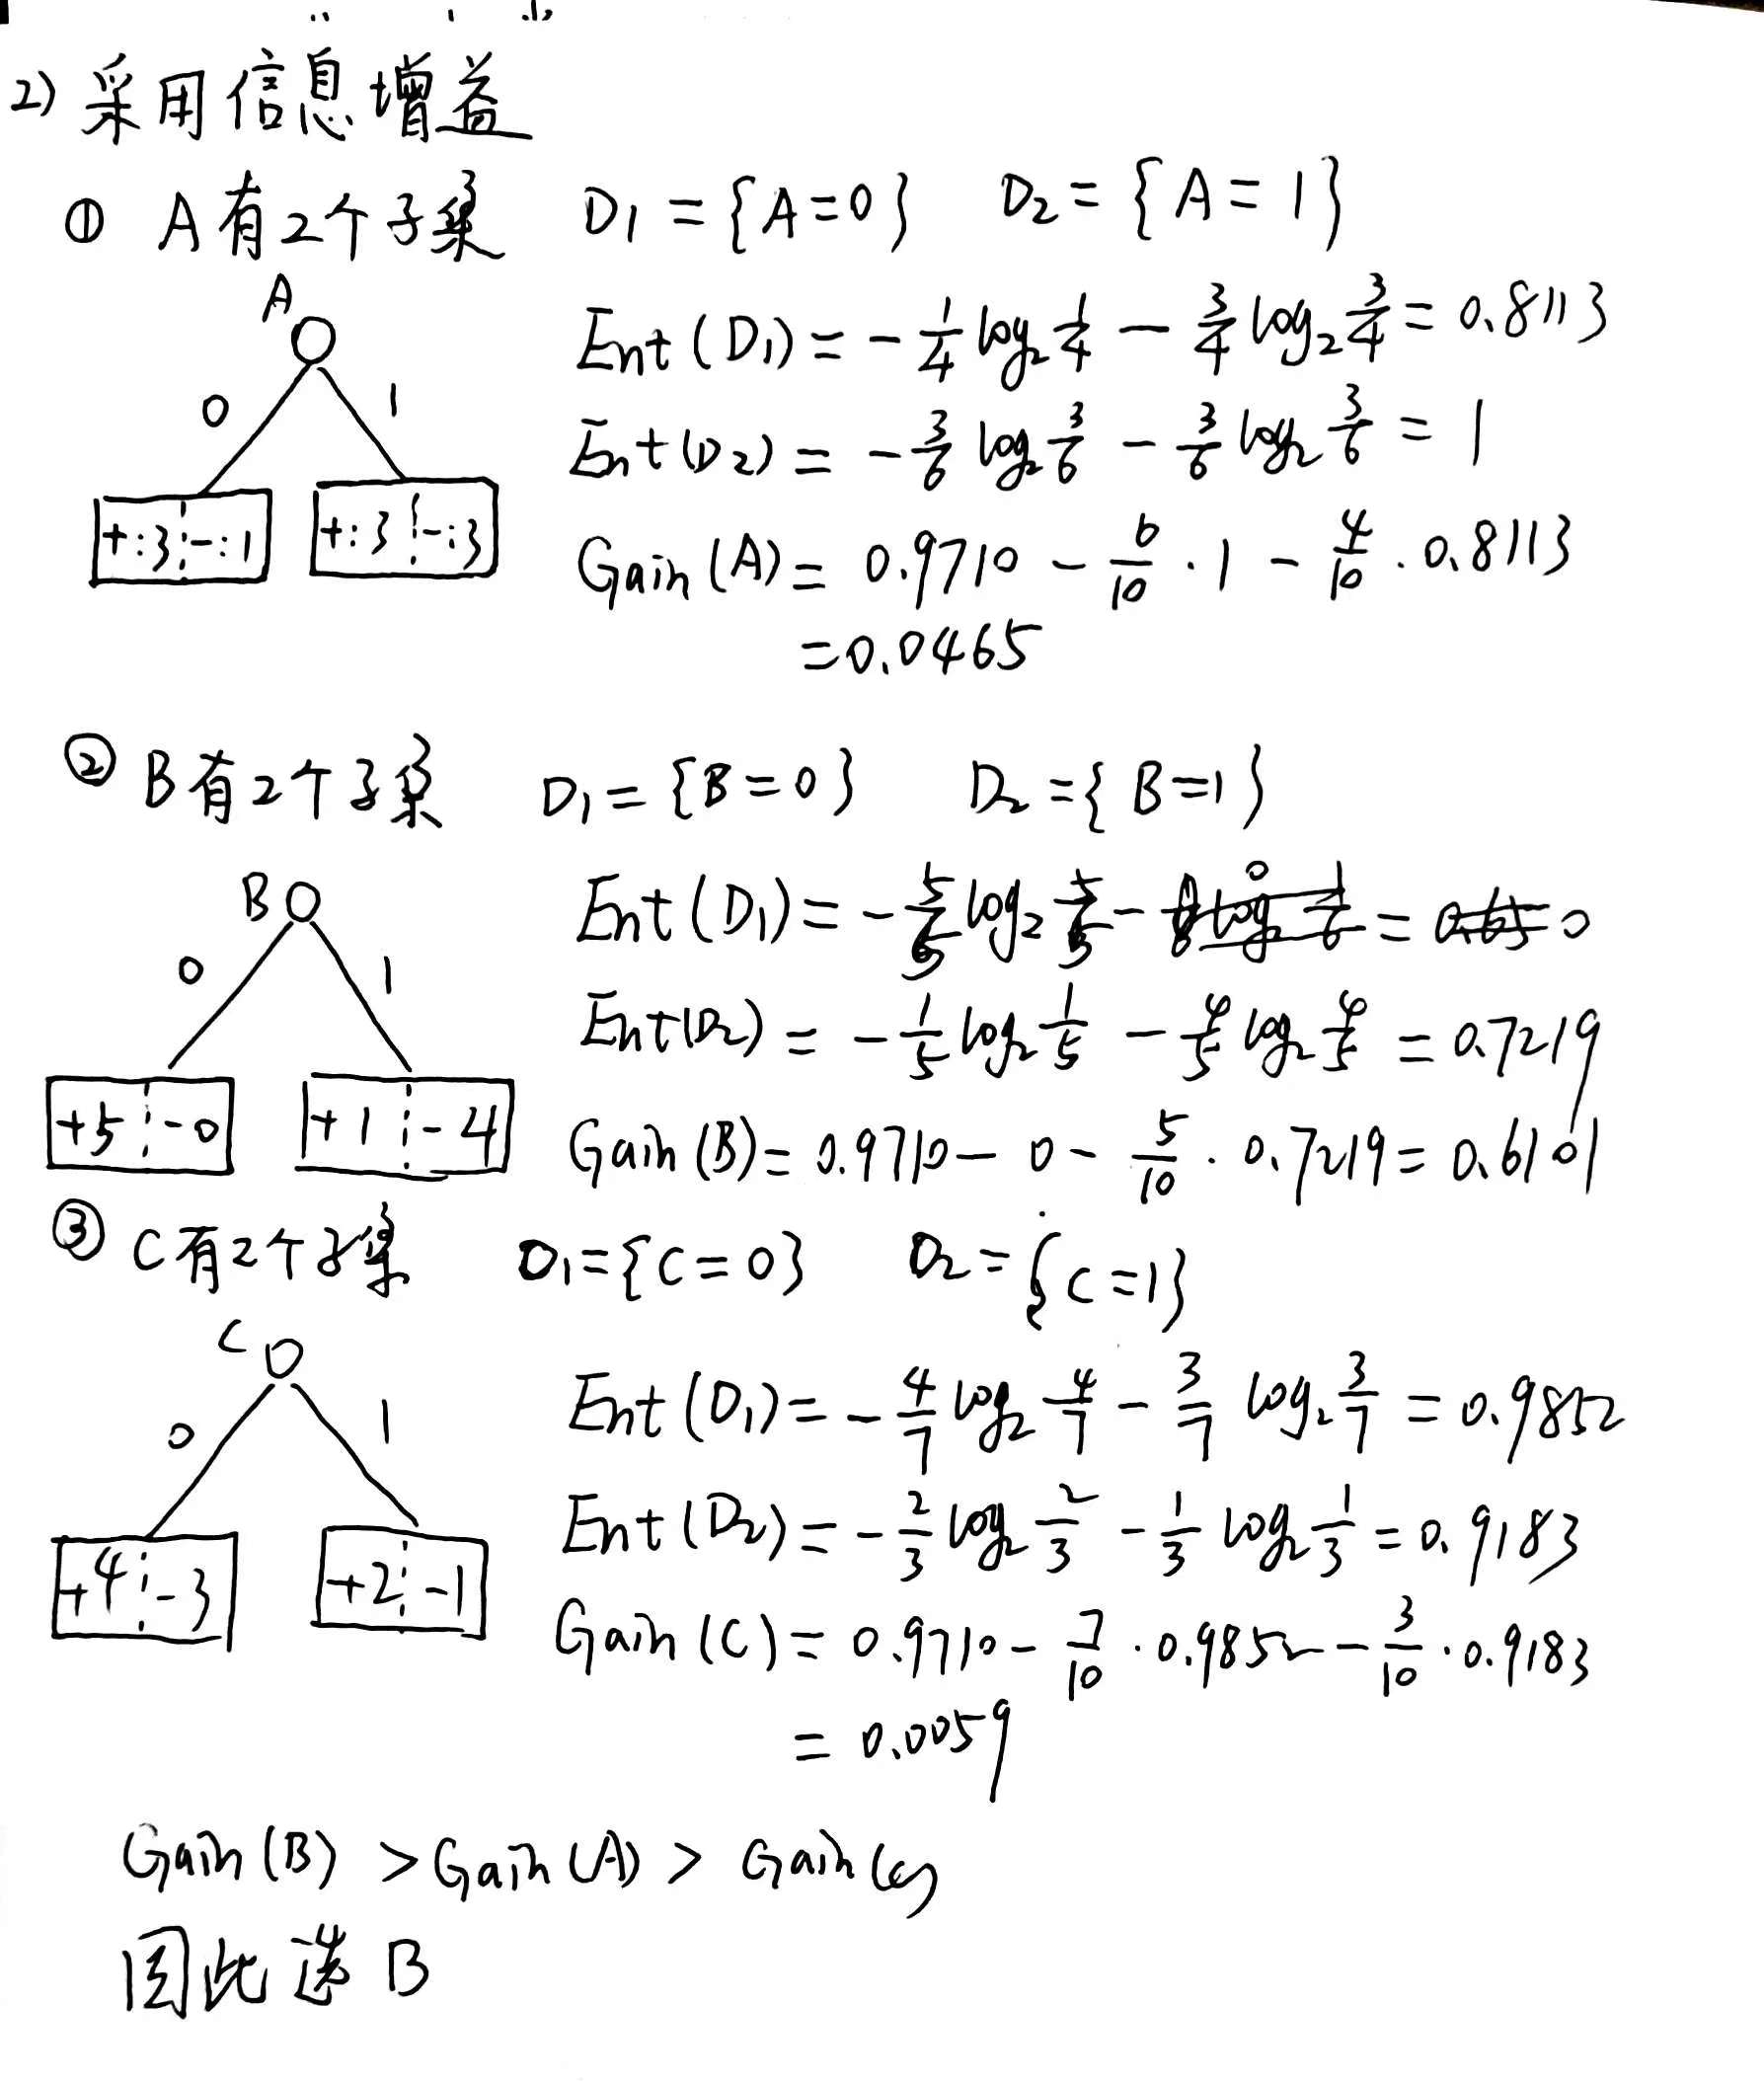 2) 采用信息增益
① A有2个子集 D1 = {A=0} D2 = {A=1}
A
0 1
+:3 -:1 +:3 -:3
Ent(D1) = -1/4 log2 1/4 - 3/4 log2 3/4 = 0.8113
Ent(D2) = -3/6 log2 3/6 - 3/6 log2 3/6 = 1
Gain(A) = 0.9710 - 6/10 · 1 - 4/10 · 0.8113
= 0.0465
② B有2个子集 D1 = {B=0} D2 = {B=1}
B
0 1
+5 -0 +1 -4
Ent(D1) = -5/5 log2 5/5 - 0 = 0
Ent(D2) = -1/5 log2 1/5 - 4/5 log2 4/5 = 0.7219
Gain(B) = 0.9710 - 0 - 5/10 · 0.7219 = 0.6101
③ C有2个子集 D1 = {C=0} D2 = {C=1}
C
0 1
+4 -3 +2 -1
Ent(D1) = -4/7 log2 4/7 - 3/7 log2 3/7 = 0.9852
Ent(D2) = -2/3 log2 2/3 - 1/3 log2 1/3 = 0.9183
Gain(C) = 0.9710 - 7/10 · 0.9852 - 3/10 · 0.9183
= 0.0059
Gain(B) > Gain(A) > Gain(C)
因此选B